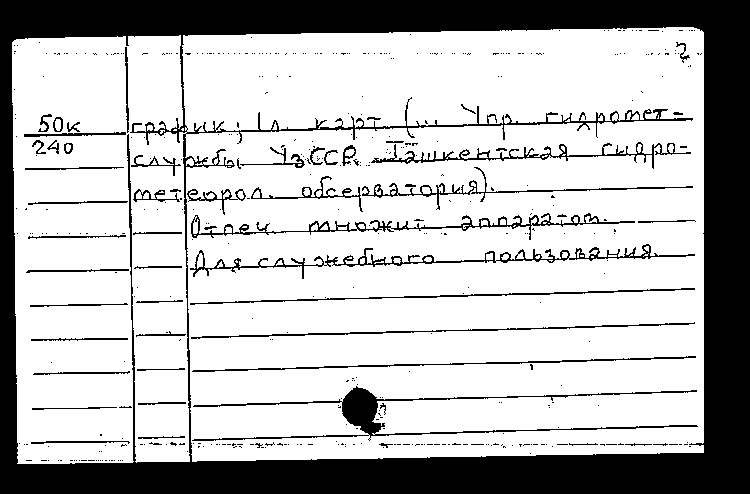 2
50к график; 1 л. карт (... Упр. гидромет-
240 службы УзССР. Ташкентская гидро-
метеорол. обсерватория).
Отпеч. множит. аппаратом.
Для служебного пользования.